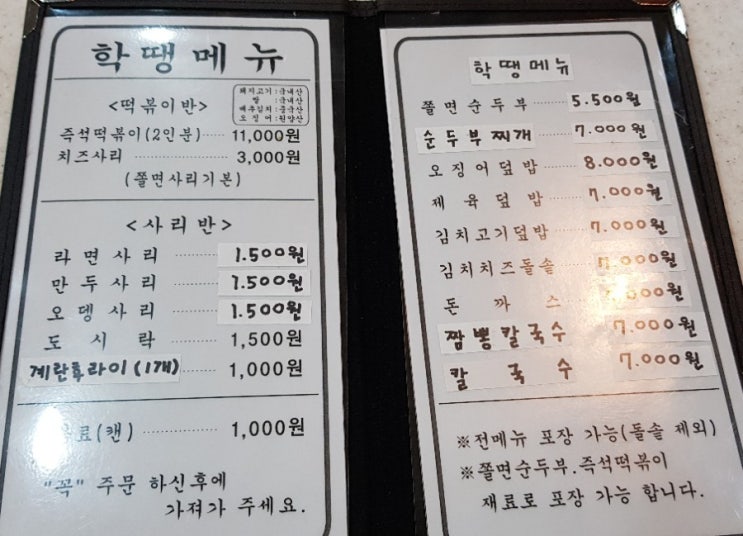 학땡메뉴
<떡볶이반>
돼지고기:국내산
쌀:국내산
배추김치:중국산
오징어:원양산
즉석떡볶이(2인분) 11,000원
치즈사리 3,000원
(쫄면사리기본)
<사리반>
라면사리 1.500원
만두사리 1.500원
오뎅사리 1.500원
도시락 1,500원
계란후라이(1개) 1,000원
(캔) 1,000원
"꼭" 주문 하신후에
가져가 주세요.
학땡메뉴
쫄면순두부 5.500원
순두부찌개 7.000원
오징어덮밥 8.000원
제육덮밥 7.000원
김치고기덮밥 7.000원
김치치즈돌솥 7.000원
돈까스
짬뽕칼국수 7.000원
칼국수 7.000원
※전메뉴 포장 가능(돌솥 제외)
※쫄면순두부.즉석떡볶이
재료로 포장 가능 합니다.